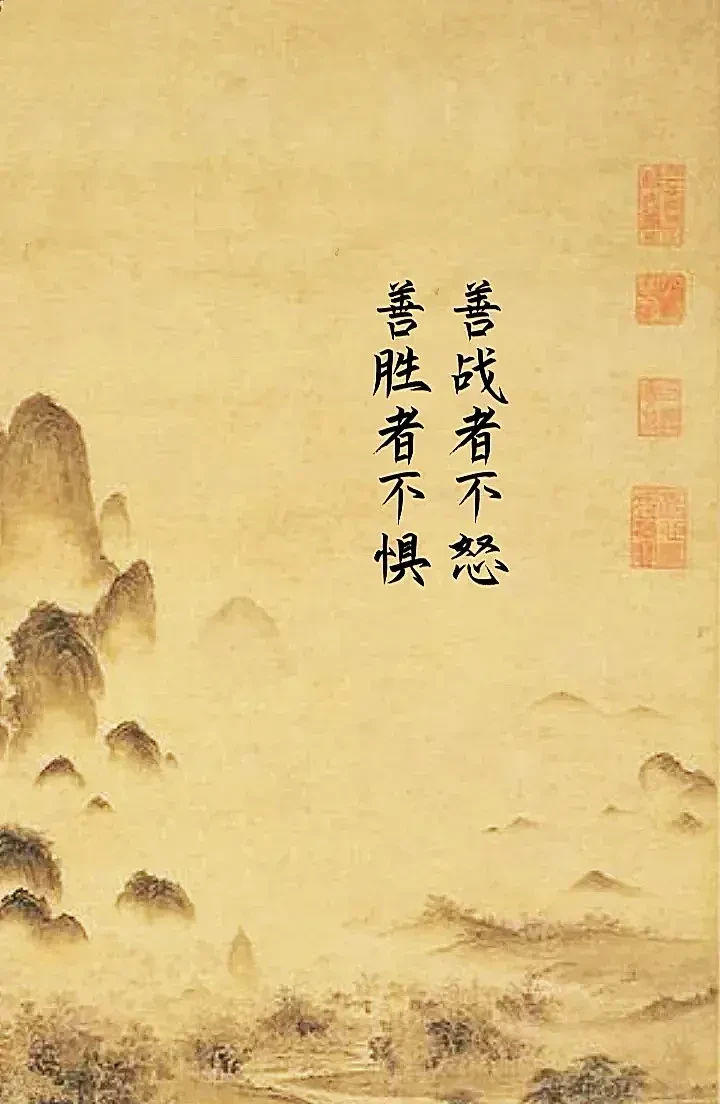 善战者不怒
善胜者不惧